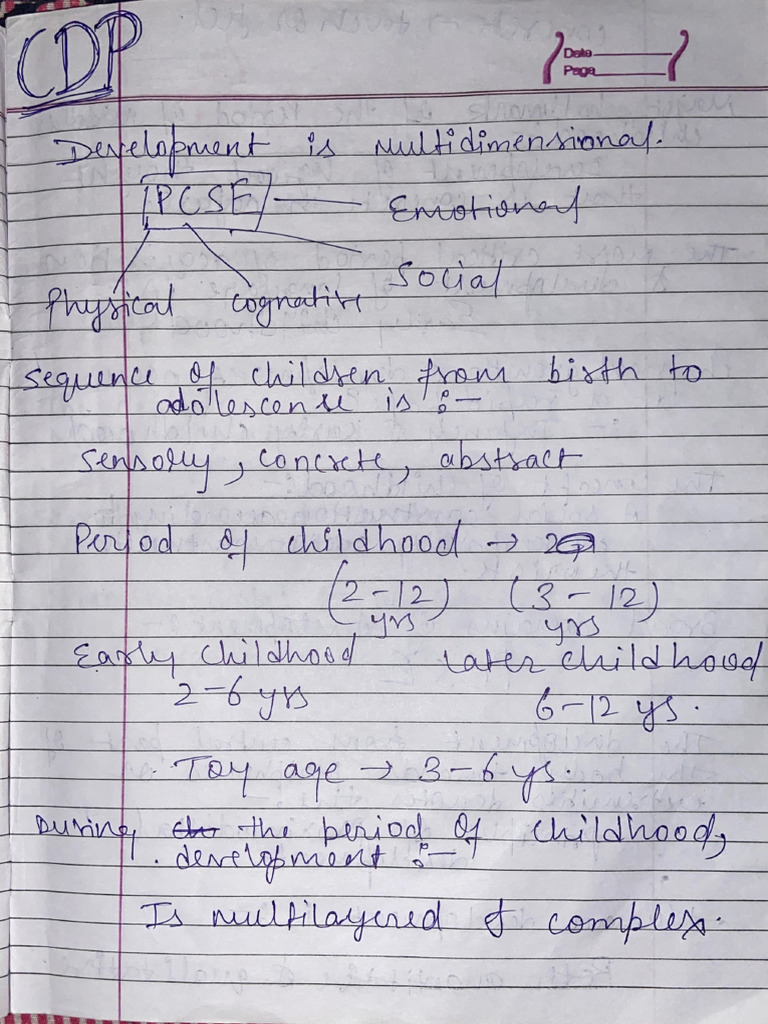 CDP
Date
Page
Development is multidimensional.
PCSE — Emotional
Social
Physical cognative
sequence of children from birth to
adolescense is :-
sensory, concrete, abstract
Period of childhood →
(2-12) (3-12)
yrs yrs
Early childhood Later childhood
2-6 yrs 6-12 ys.
. Toy age → 3-6 ys.
During the period of childhood,
. development :-
Is multilayered & complex.